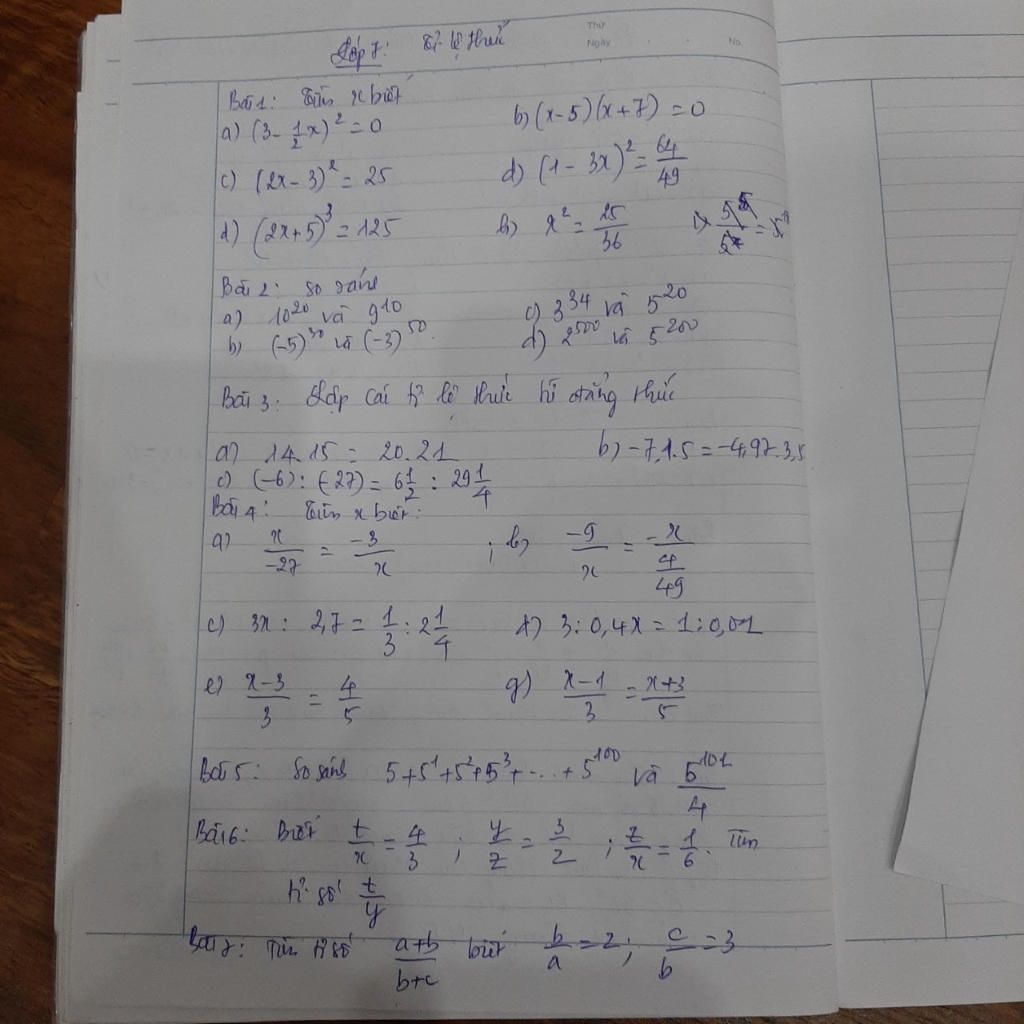 Thứ
Lớp 7: Tỉ lệ thức
Ngày No.
Bài 1: Tìm x biết
a) (3 - 1/2 x)² = 0 b) (x-5)(x+7) = 0
c) (2x-3)² = 25 d) (1-3x)² = 64/49
d) (2x+5)³ = 125 h) x² = 25/36
Bài 2: So sánh
a) 10²⁰ và 9¹⁰ c) 3³⁴ và 5²⁰
b) (-5)³⁰ và (-3)⁵⁰. d) 2⁵⁰⁰ và 5²⁰⁰
Bài 3: Lập các tỉ lệ thức từ đẳng thức
a) 14.15 = 20.21 b) -7,1.5 = -4,97.3,5
c) (-6):(-27) = 6 1/2 : 29 1/4
Bài 4: Tìm x biết:
a) x/-27 = -3/x ; b) -9/x = -x/(4/49)
c) 3x : 2,7 = 1/3 : 2 1/4 d) 3:0,4x = 1:0,01
e) (x-3)/3 = 4/5 g) (x-1)/3 = (x+3)/5
Bài 5: So sánh 5+5¹+5²+5³+...+5¹⁰⁰ và 5¹⁰¹/4
Bài 6: Biết t/x = 4/3 ; y/z = 3/2 ; z/x = 1/6. Tìm
tỉ số t/y
Bài 7: Tìm tỉ số (a+b)/(b+c) biết b/a = 2; c/b = 3